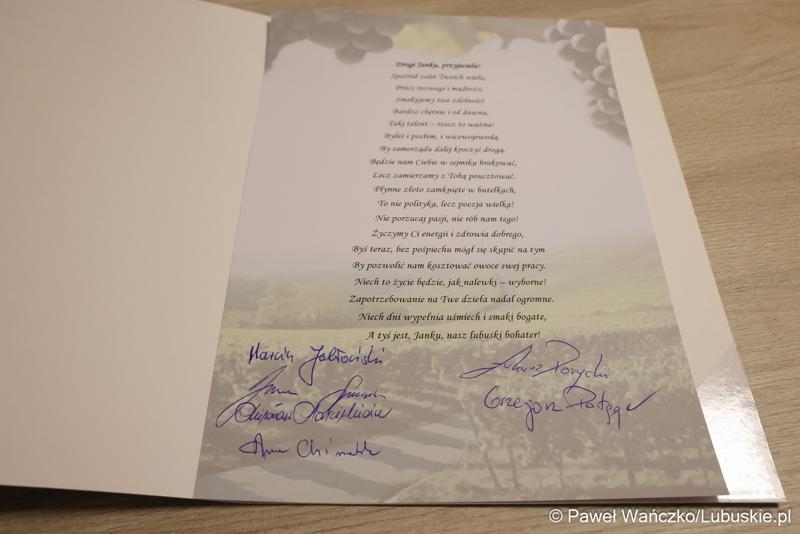 Drogi Janku, przyjacielu!
Spośród zalet Twoich wielu,
Prócz rozwagi i mądrości,
Smakujemy twe zdolności
Bardzo chętnie i od dawna,
Taki talent – rzecz to ważna!
Byłeś i posłem, i wicewojewodą,
By samorządu dalej kroczyć drogą.
Będzie nam Ciebie w sejmiku brakować,
Lecz zamierzamy z Tobą poucztować.
Płynne złoto zamknięte w butelkach,
To nie polityka, lecz poezja wielka!
Nie porzucaj pasji, nie rób nam tego!
Życzymy Ci energii i zdrowia dobrego,
Byś teraz, bez pośpiechu mógł się skupić na tym
By pozwolić nam kosztować owoce swej pracy.
Niech to życie będzie, jak nalewki – wyborne!
Zapotrzebowanie na Twe dzieła nadal ogromne.
Niech dni wypełnia uśmiech i smaki bogate,
A tyś jest, Janku, nasz lubuski bohater!
Marcin Jabłoński
Łukasz Porycki
Grzegorz Potęga
Anna
© Paweł Wańczko/Lubuskie.pl